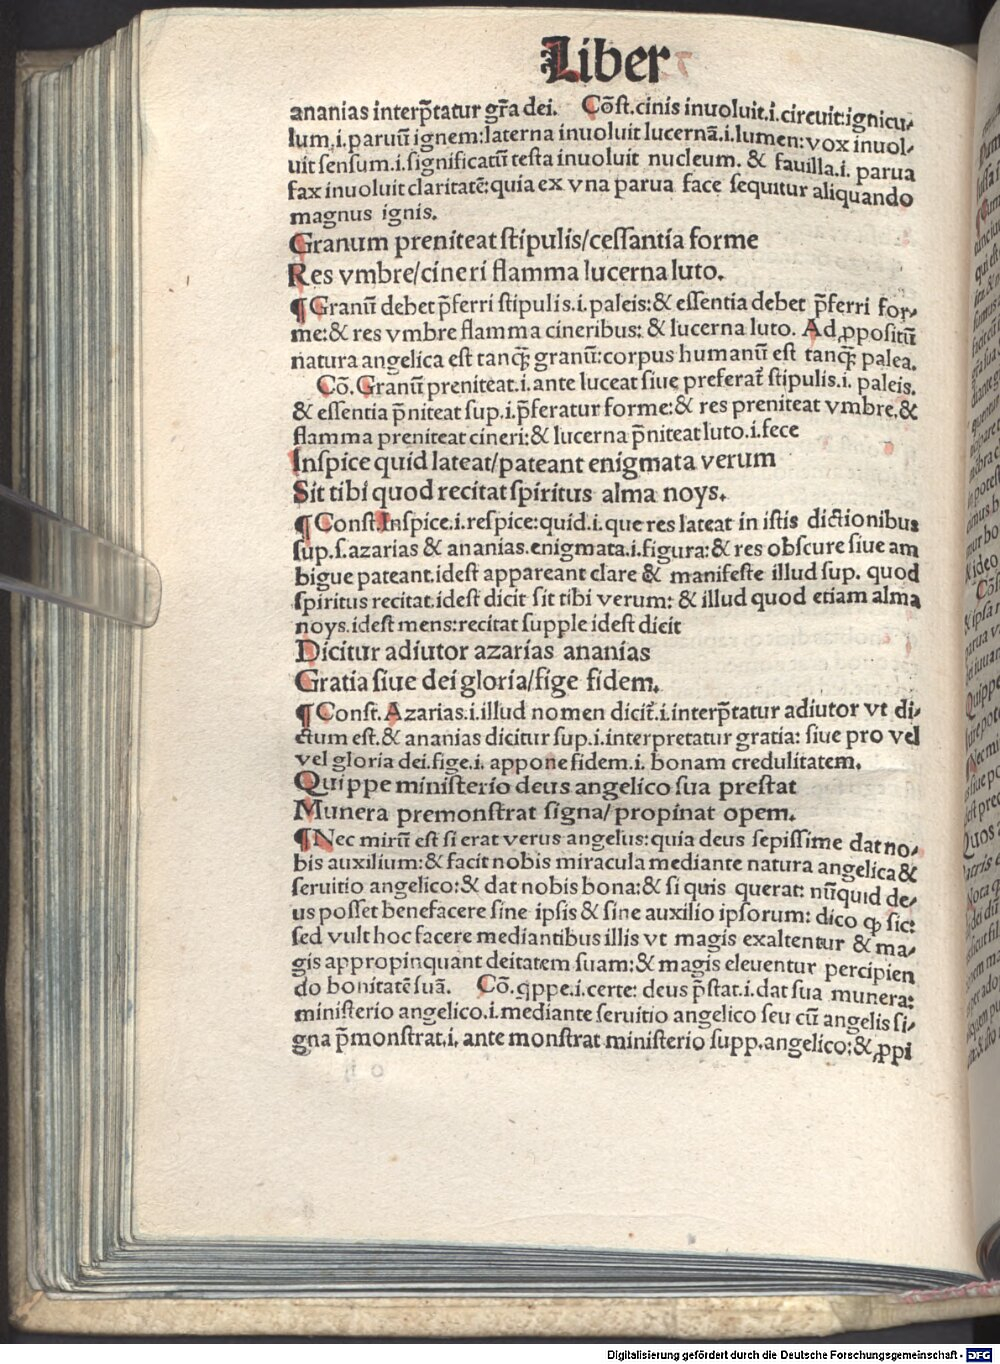 Liber
ananias interp̄tatur gr̄a dei. Cōst. cinis inuoluit.i.circuit:ignicu⸗
lum.i.paruū ignem:laterna inuoluit lucernā.i.lumen:vox inuol⸗
uit sensum.i.significatū testa inuoluit nucleum. & fauilla.i. parua
fax inuoluit claritatē:quia ex vna parua face sequitur aliquando
magnus ignis.
Granum preniteat stipulis/cessantia forme
Res vmbre/cineri flamma lucerna luto.
¶ Granū debet p̄ferri stipulis.i.paleis:& essentia debet p̄ferri for⸗
me:& res vmbre flamma cineribus: & lucerna luto. Ad ꝓpositū
natura angelica est tanꝙ̄ granū:corpus humanū est tanꝙ̄ palea.
Cō. Granū preniteat.i.ante luceat siue preferat̄ stipulis.i. paleis.
& essentia p̄niteat sup.i.p̄feratur forme:& res preniteat vmbre.&
flamma preniteat cineri:& lucerna p̄niteat luto.i.fece
Inspice quid lateat/pateant enigmata verum
Sit tibi quod recitat spiritus alma noys.
¶ Const. Inspice.i.respice:quid.i.que res lateat in istis dictionibus
sup.s.azarias & ananias.enigmata.i.figura:& res obscure siue am
bigue pateant.idest appareant clare & manifeste illud sup. quod
spiritus recitat.idest dicit sit tibi verum: & illud quod etiam alma
noys.idest mens:recitat supple idest dicit
Dicitur adiutor azarias ananias
Gratia siue dei gloria/fige fidem.
¶ Const. Azarias.i.illud nomen dicit̄.i.interp̄tatur adiutor vt di⸗
ctum est.& ananias dicitur sup.i.interpretatur gratia: siue pro vel
vel gloria dei.fige.i. appone fidem.i. bonam credulitatem.
Quippe ministerio deus angelico sua prestat
Munera premonstrat signa/propinat opem.
¶ Nec mirū est si erat verus angelus:quia deus sepissime dat no⸗
bis auxilium:& facit nobis miracula mediante natura angelica &
seruitio angelico:& dat nobis bona:& si quis querat: nūquid de⸗
us posset benefacere sine ipsis & sine auxilio ipsorum: dico ꝙ sic:
sed vult hoc facere mediantibus illis vt magis exaltentur & ma⸗
gis appropinquant deitatem suam:& magis eleuentur percipien
do bonitatē suā. Cō. qppe.i.certe: deus p̄stat.i.dat sua munera:
ministerio angelico.i.mediante seruitio angelico seu cū angelis si⸗
gna p̄monstrat.i. ante monstrat ministerio supp.angelico:& ꝓpi
Digitalisierung gefördert durch die Deutsche Forschungsgemeinschaft - DFG